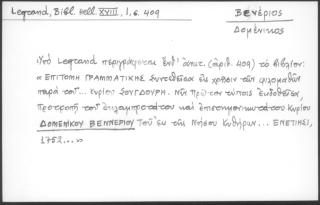 Legrand, Bibl. Hell. XVIII, 1, σ. 409
Βενέριος
Δομένικος
Ὑπὸ Legrand περιγράφεται ὑπ' ἀριθ. (ἀριθ. 409) τὸ βιβλίον:
« ΕΠΙΤΟΜΗ ΓΡΑΜΜΑΤΙΚΗΣ συντεθεῖσα εἰς χρῆσιν τῶν φιλομαθῶν
παρὰ τοῦ... κυρίου ΣΟΥΓΔΟΥΡΗ. Νῦν πρῶτον τύποις ἐκδοθεῖσα,
προτροπῇ τοῦ ἐκλαμπροτάτου καὶ ἐπιστημονικωτάτου Κυρίου
ΔΟΜΕΝΙΚΟΥ ΒΕΝΝΕΡΙΟΥ τοῦ ἐκ τῆς Νήσου Κυθήρων... ΕΝΕΤΙΗΣΙ,
1752...»